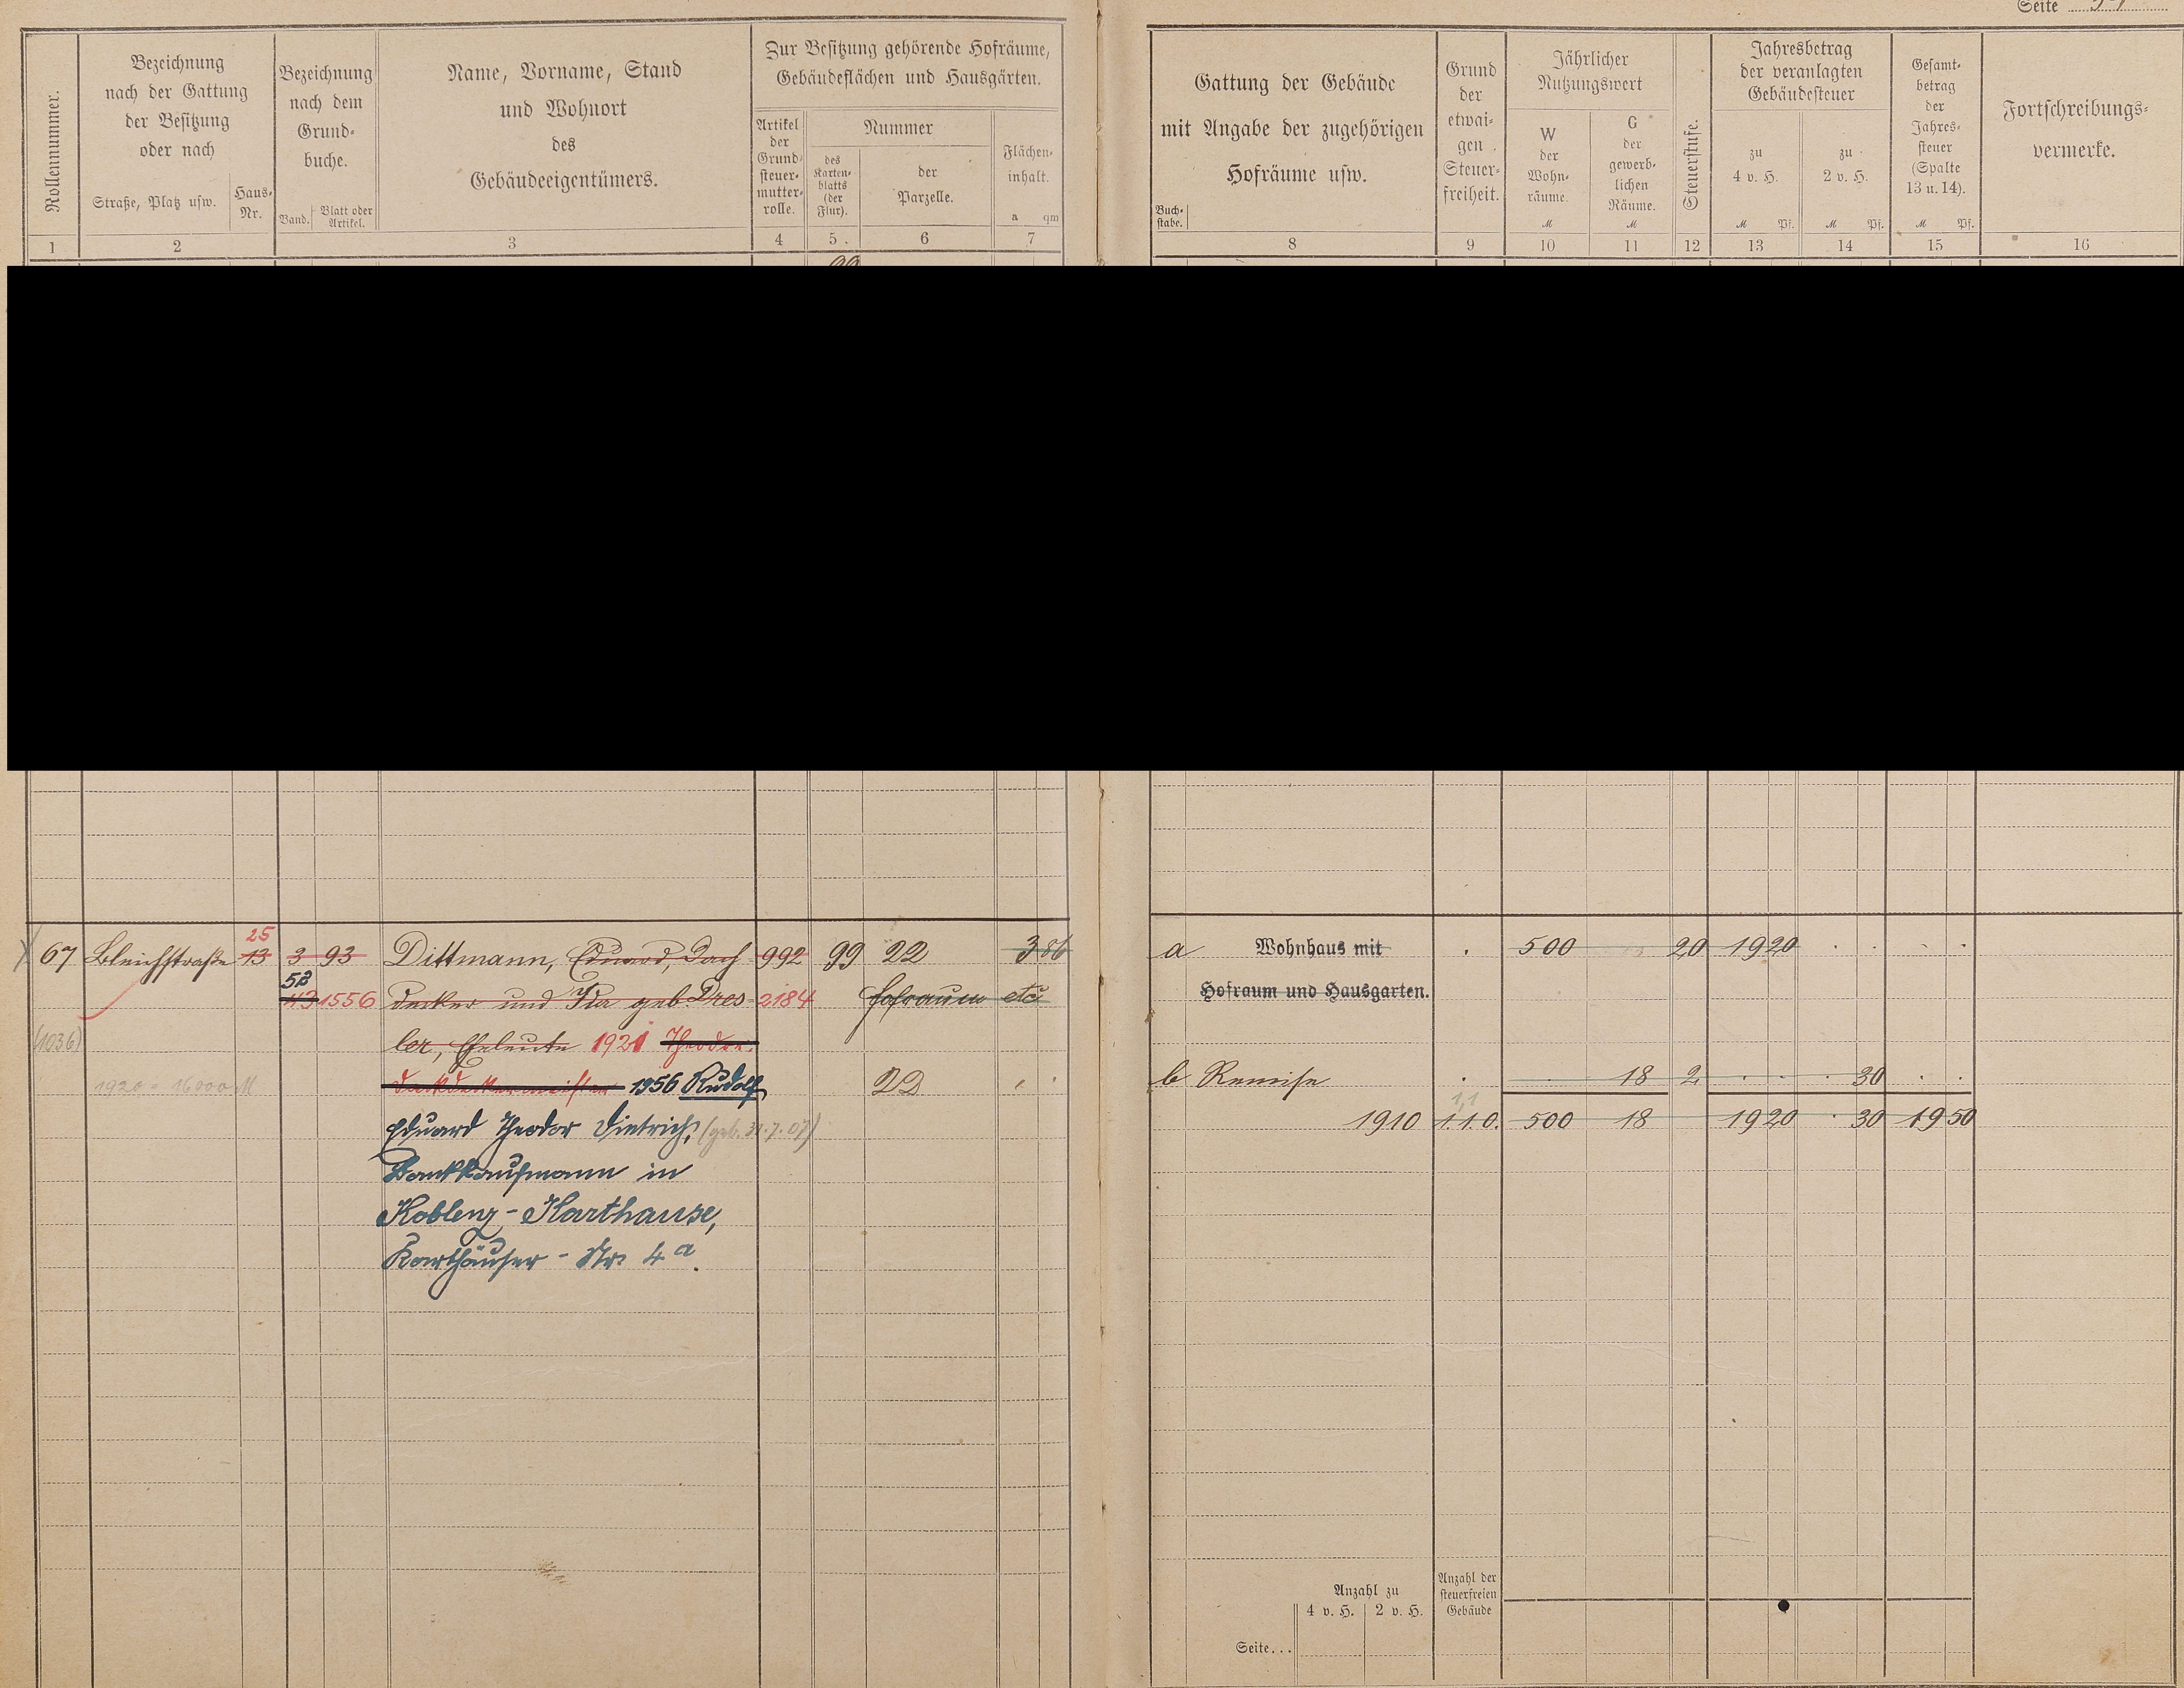 Zur Besitzung gehörende Hofräume,
Gebäudeflächen und Hausgärten.
Rollennummer.
Bezeichnung
nach der Gattung
der Besitzung
oder nach
Straße, Platz usw.
Haus-
Nr.
Bezeichnung
nach dem
Grund-
buche.
Band.
Blatt oder
Artikel.
Name, Vorname, Stand
und Wohnort
des
Gebäudeeigentümers.
Artikel
der
Grund-
steuer-
mutter-
rolle.
Nummer
des
Karten-
blatts
(der
Flur).
der
Parzelle.
Flächen-
inhalt.
a qm
1 2 3 4 5. 6 7
67 Bleichstraße 13 3 93 Dittmann, Eduard, Dach 992 99 22 386
25
52
43 1556 decker und Ida geb. Dres- 2184 Hofraum etc
(1036) ler, Eheleute 1921 Theodor
1920 = 16000 M Dachdeckermeister 1956 Rudolf 22
Eduard Theodor Dietrich, (geb. 31.7.07)
Bankkaufmann in
Koblenz-Karthause,
Karthäuser-Str. 4a.
Seite
Gattung der Gebäude
mit Angabe der zugehörigen
Hofräume usw.
Buch-
stabe.
Grund
der
etwai-
gen
Steuer-
freiheit.
Jährlicher
Nutzungswert
W
der
Wohn-
räume.
M
G
der
gewerb-
lichen
Räume.
M
Steuerstufe.
Jahresbetrag
der veranlagten
Gebäudesteuer
zu
4 v. H.
M Pf.
zu
2 v. H.
M Pf.
Gesamt-
betrag
der
Jahres-
steuer
(Spalte
13 u. 14).
M Pf.
Fortschreibungs-
vermerke.
8 9 10 11 12 13 14 15 16
a Wohnhaus mit . 500 20 19 20 . . . .
Hofraum und Hausgarten.
b Remise . . 18 2 . . . 30 . .
1,1
1910 1.1.0. 500 18 19 20 . 30 19 50
Anzahl zu
4 v. H. 2 v. H.
Anzahl der
steuerfreien
Gebäude
Seite...